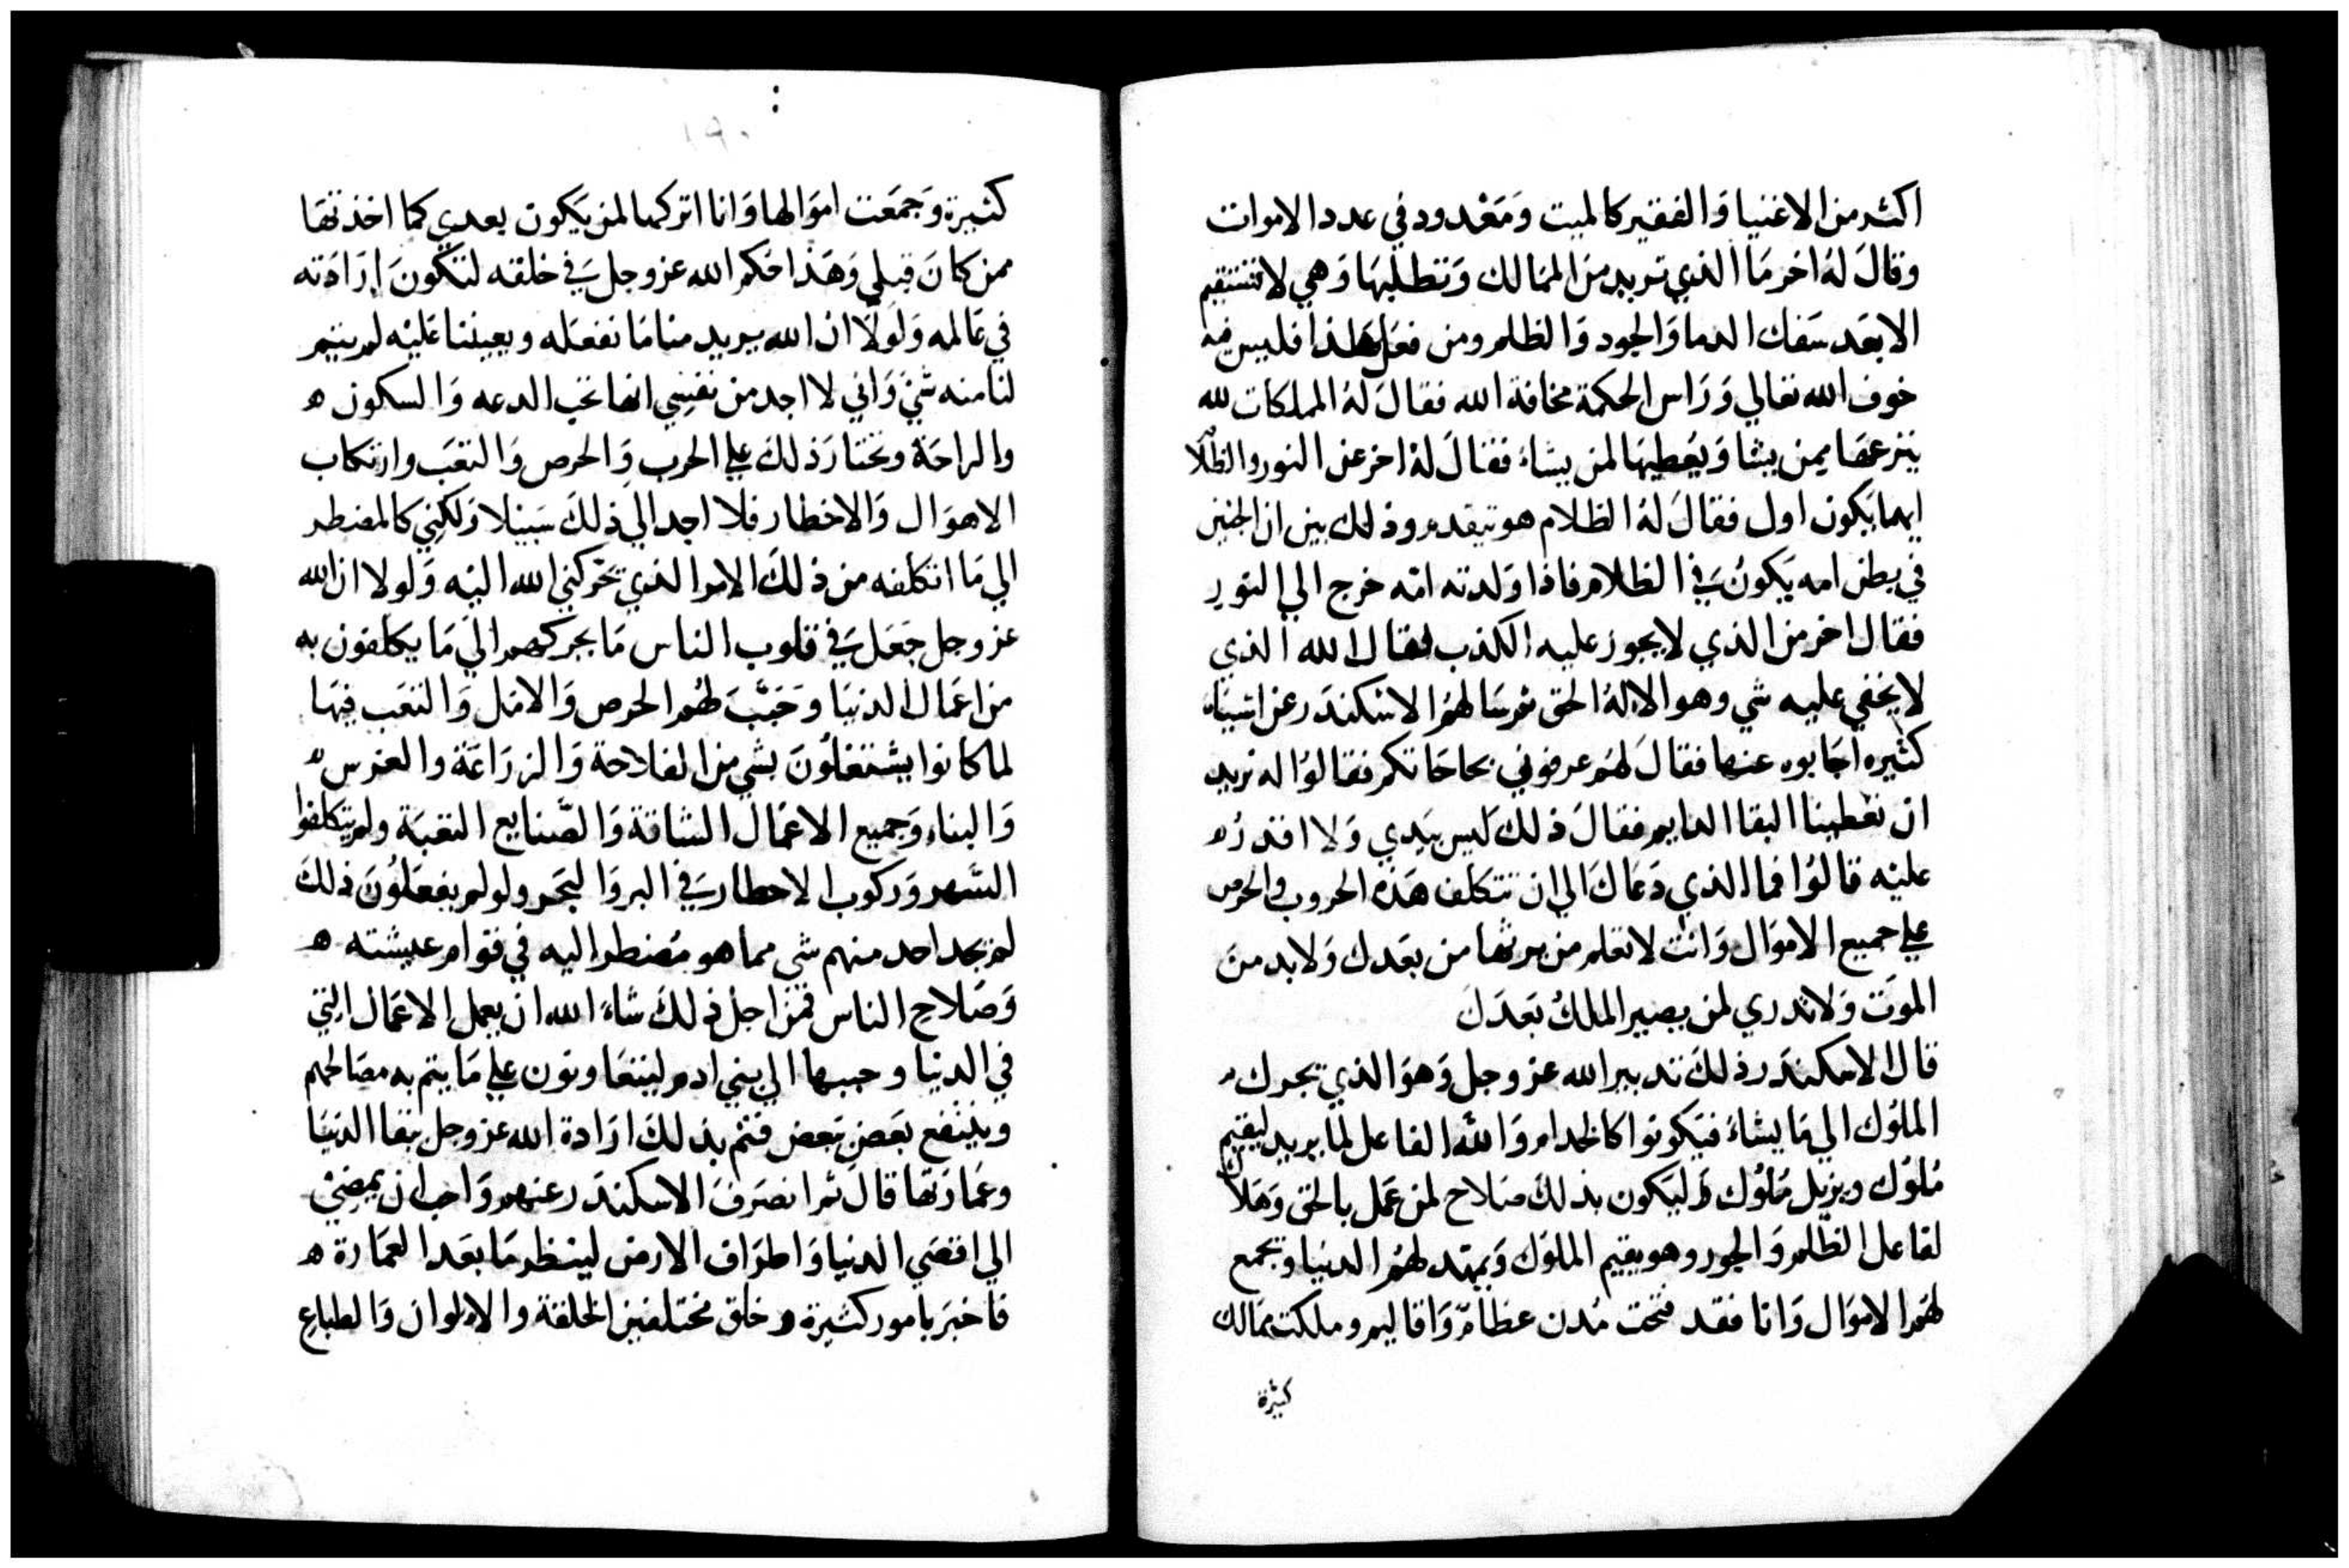 اكثر من الاغنيا وَالفقير كالميت وَمَعْدود في عدد الاموات
وقالَ لهُ اخر مَا الذي تريد من الممَالك وَتطلبهَا وَهي لا تستقيم
الا بعَد سَفك الدما وَالجود وَالظلم ومن فعَل هَذا فليس فيه
خوف الله تعالي وَرَاس الحكمة مخافة الله فقالَ لهُ المملكات لله
ينزعهَا ممن يشا وَيُعطيهَا لمن يشاءُ فقالَ لهُ اخر عن النور والظلام
ايهما يكون اول فقالَ لهُ الظلام هو تيقدم وذلك بين ان الجنين
في بطن امه يَكونُ في الظلام فاذا وَلدته امّه خرج الي النور
فقال اخر من الذي لا يجوز عليه الكذب فقال الله الذي
لا يخفي عليه شي وهو الالهُ الحق ثم سَالهمُ الاسْكندَر عن اشياء
كثيره اجَابوه عنها فقالَ لهُم عرضوني بحاجَاتكم فقالوُا له نريد
ان تعْطينا البقا الدايم فقالَ ذلك ليسَ بيَدي وَلا اقدرُ
عليْه قالوُا فما الذي دَعَاكَ الي ان تتكلف هَذه الحروب والحرص
علي جميع الاموَال وَانت لا تعلم من يرثها من بعَدك وَلا بد منَ
الموَت وَلا تدري لمن يصير الملكُ بَعدَكَ
قال الاسكندَر ذلكَ تدبير الله عز وجل وَهوَ الذي يحرك
الملوُك الي مَا يشاءُ فيَكونوا كالخدام وَاللّهُ الفاعل لما يريد ليقيم
مُلوُك ويزيل مُلوُك وَليَكون بذلكَ صَلاح لمن عَمل بالحق وَهَلاك
لفاعل الظّلم وَالجور وهو يقيم الملوُك وَيمهّد لهُم الدنيا وَيجمع
لهُم الاموَال وَانا فقد فتحَت مُدن عظامّ وَاقاليم وملكت ممَالك
كثيرة
١٩٠
كثيرة وَجمَعت اموَالها وَانا اتركها لمن يَكون بعدي كما اخذتهَا
ممن كانَ قبلي وَهَذا حَكم الله عز وجل في خلقه لتكونَ إرَادَته
في عَالمه وَلَولَا ان الله يريد منا مَا نفعَله ويعيننا عَليْه لم يتم
لنا منه شيْ وَاني لا اجد من نفسِي انها تحَب الدعه وَالسكون ه
والراحَة وتختارَ ذلكَ علي الحرب وَالحرص وَالتعَب وارتكاب
الاهوَال وَالاخطار فلا اجد الي ذلكَ سَبيْلا وَلكنِي كالمضطر
الي مَا اتكلفه من ذلكَ الامر الذي يحَركني الله اليْه وَلولا ان الله
عز وجل جَعَلَ في قلوب الناس مَا يحركهم الي مَا يكلفون به
من اعمَال الدنيَا وَحَبّبَ لهُم الحرص وَالامَل وَالتعَب فيهَا
لما كانوا يشتغلُونَ بشي من الفلاحة وَالزرَاعَة والغرس
وَالبناء وَجميع الاعمَال الشاقة وَالصّنايع التعَبة ولم يتكلفوا
السّهر وَركوب الاخطار في البر وَالبَحَر ولو لم يفعَلوُنَ ذلكَ
لم يجد احد منهم شي مما هو مُضطر اليه في قوام عيشته ه
وَصَلاح الناس فمنَ اجل ذلكَ شاءَ الله ان يعمل الاعمَال التي
في الدنيا وحببها الي بني ادم ليتعَاونون علي مَا يتم به مصَالحهم
وينتفع بعَض بَعض فتم بذلكَ ارَادة الله عز وجل بَبقا الدنيَا
وعمَارَتها قالَ ثم انصَرفَ الاسكندَر عنهم وَاحب ان يمضيْ
الي اقصَي الدنيا وَاطرَاف الارض لينظر مَا بعَد العمَارة ه
فاخبرَ بامور كثيرة وخلق مختلفين الخلقة والالوان وَالطباع